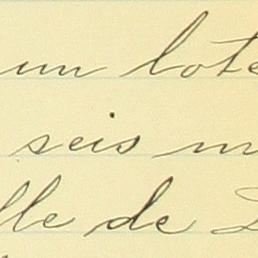 un lote
seis m
lle de